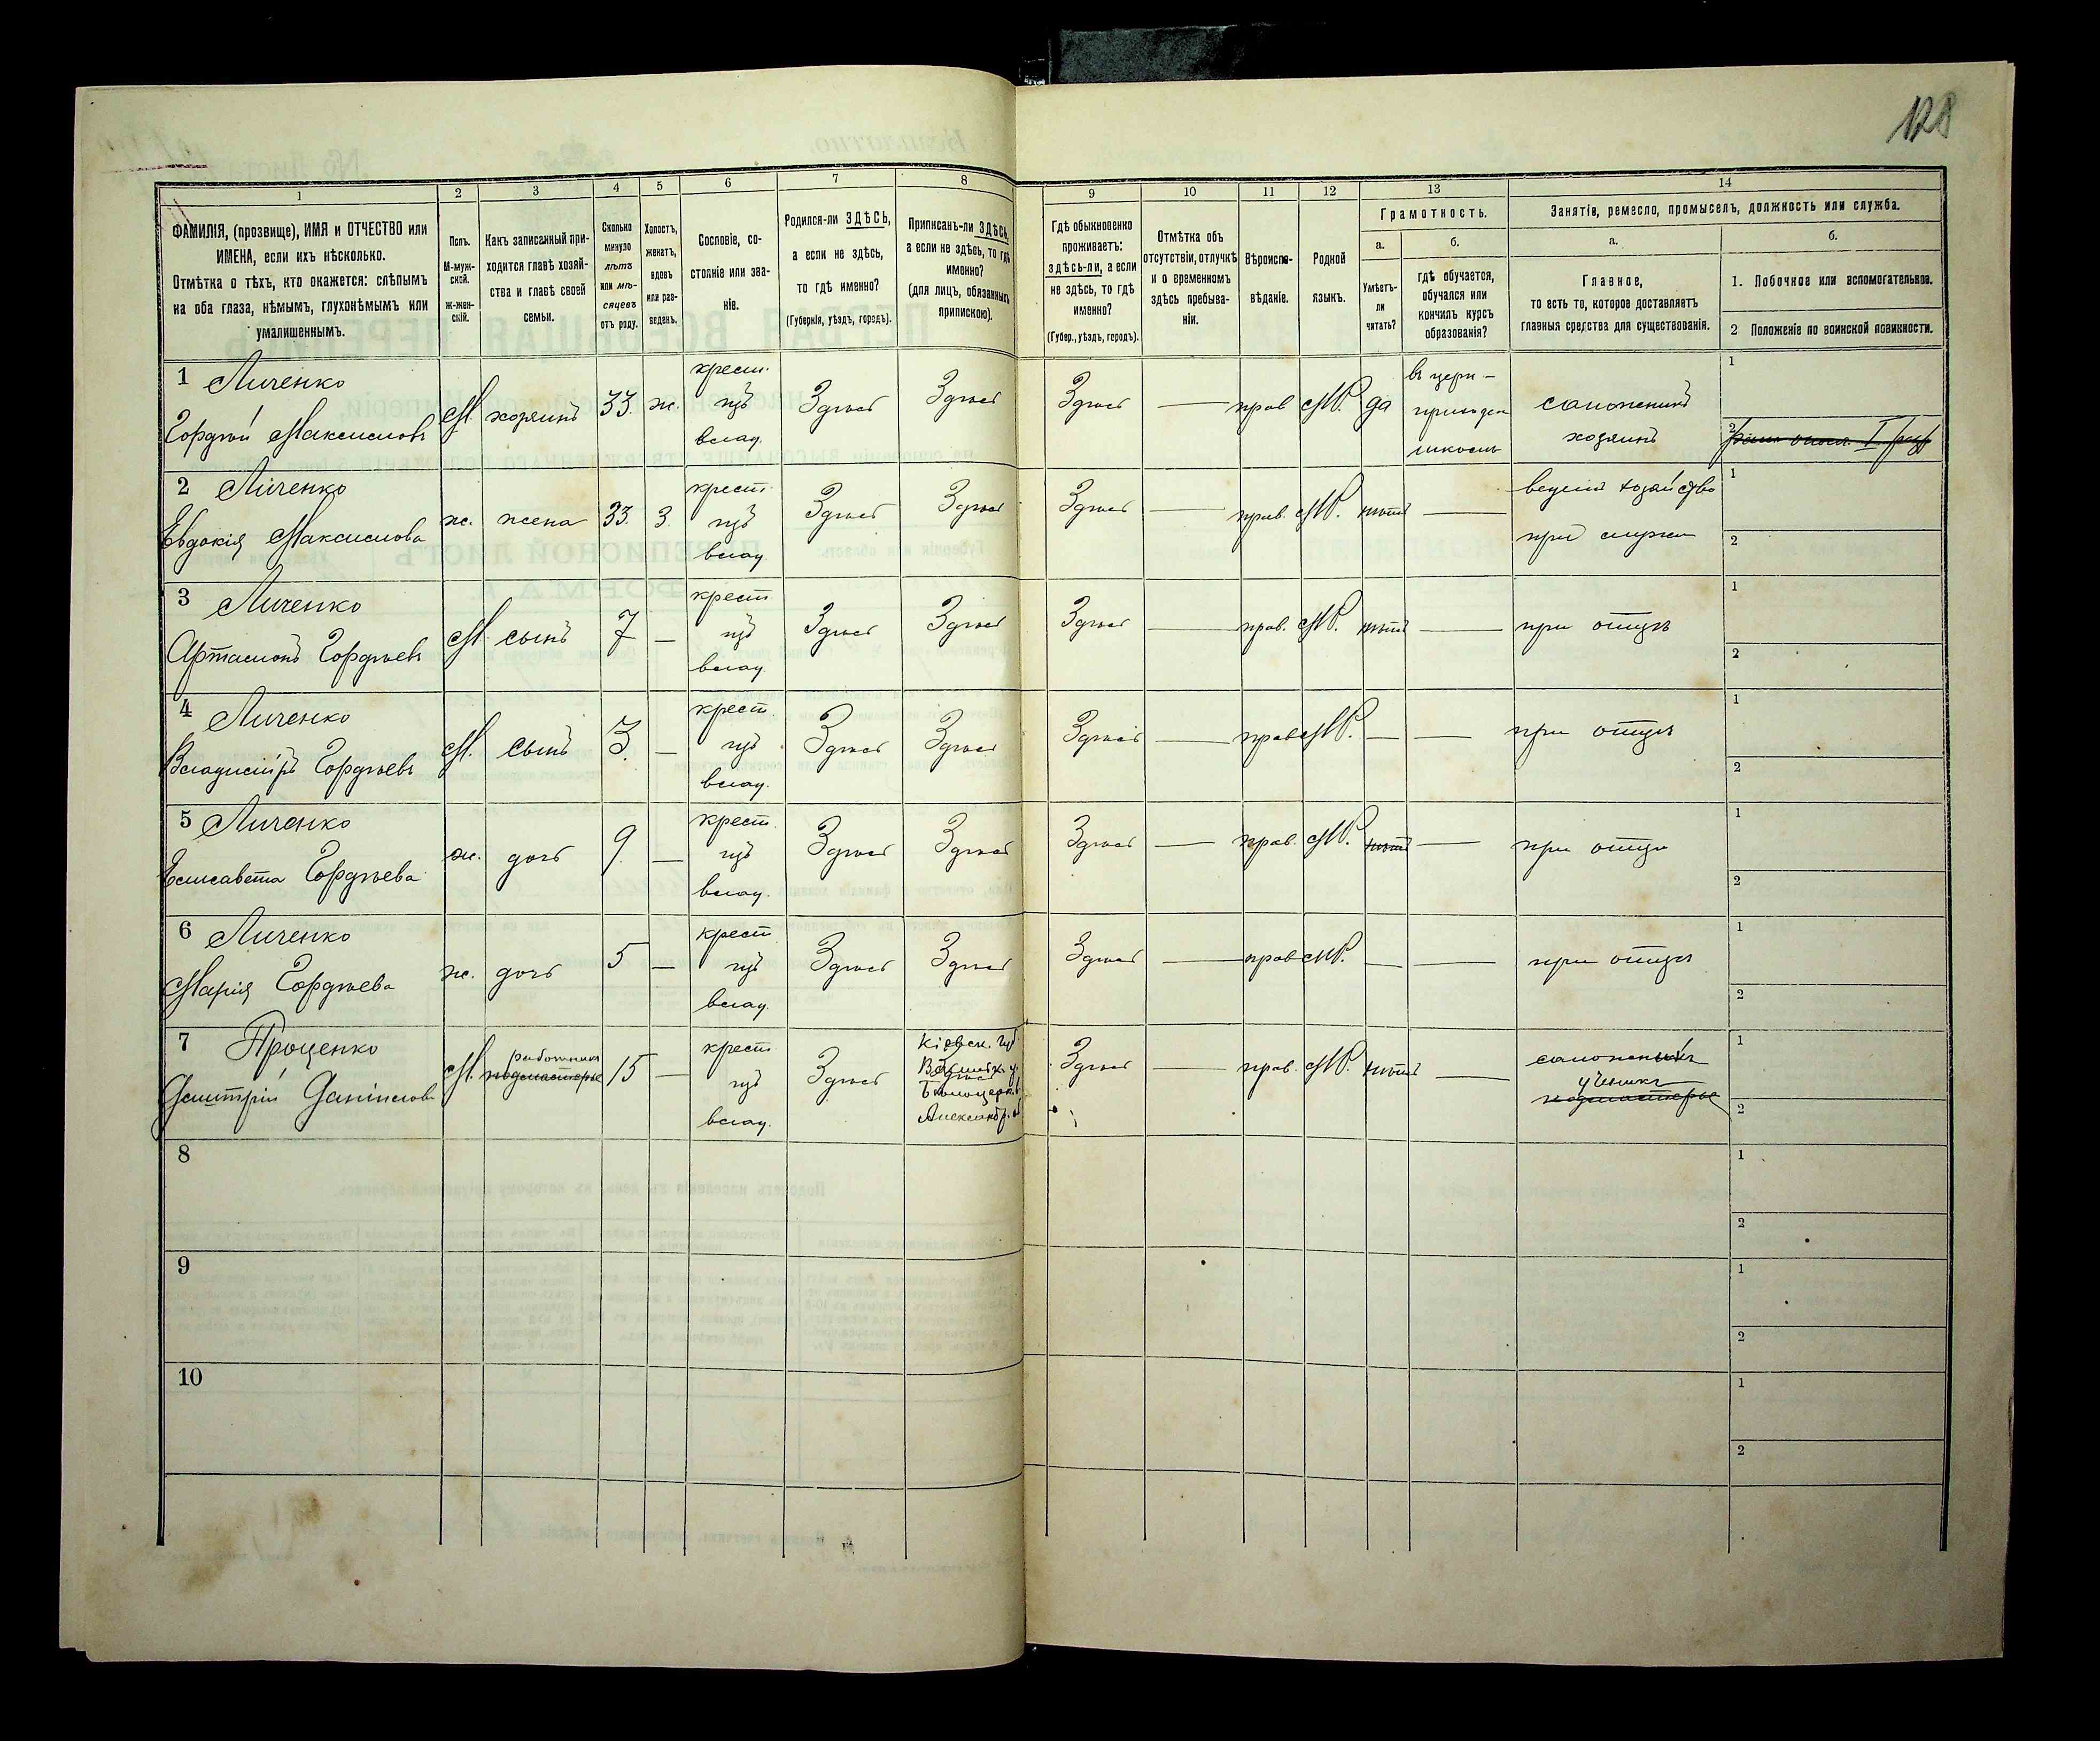 128
1
2
3
4
5
6
7
8
9
10
11
12
13
14
ФАМИЛІЯ, (прозвище), ИМЯ и ОТЧЕСТВО или
ИМЕНА, если ихъ нѣсколько.
Отмѣтка о тѣхъ, кто окажется: слѣпымъ
на оба глаза, нѣмымъ, глухонѣмымъ или
умалишеннымъ.
Полъ.
М-муж-
ской.
Ж-жен-
скій.
Какъ записанный при-
ходится главѣ хозяй-
ства и главѣ своей
семьи.
Сколько
минуло
лѣтъ
или мѣ-
сяцевъ
отъ роду.
Холостъ,
женатъ,
вдовъ
или раз-
веденъ.
Сословіе, со-
стояніе или зва-
ніе.
Родился-ли ЗДѢСЬ,
а если не здѣсь,
то гдѣ именно?
(Губернія, уѣздъ, городъ).
Приписанъ-ли ЗДѢСЬ,
а если не здѣсь, то гдѣ
именно?
(для лицъ, обязанныхъ
припискою).
Гдѣ обыкновенно
проживаетъ:
здѣсь-ли, а если
не здѣсь, то гдѣ
именно?
(Губер., уѣздъ, городъ).
Отмѣтка объ
отсутствіи, отлучкѣ
и о временномъ
здѣсь пребыва-
ніи.
Вѣроиспо-
вѣданіе.
Родной
языкъ.
Грамотность.
а.
Умѣетъ-
ли
читать?
б.
гдѣ обучается,
обучался или
кончилъ курсъ
образованія?
Занятія, ремесло, промыселъ, должность или служба.
а.
Главное,
то есть то, которое доставляетъ
главныя средства для существованія.
б.
1. Побочное или вспомогательное.
2 Положеніе по воинской повинности.
1 Личенко
Гордѣй Максимовъ
М хозяинъ 33. ж.
крест.
изъ
влад.
Здѣсь Здѣсь Здѣсь — прав М.Р. да
въ церк-
приходск
школѣ
сапожникъ
хозяинъ
1
2
2 Личенко
Евдокія Максимова
ж. жена 33. З.
крест.
изъ
влад.
Здѣсь Здѣсь Здѣсь — прав. М.Р. нѣтъ —
ведетъ хозяйство
при мужѣ
1
2
3 Личенко
Артамонъ Гордѣевъ
М сынъ 7 —
крест
изъ
влад.
Здѣсь Здѣсь Здѣсь — прав. М.Р. нѣтъ — при отцѣ
1
2
4 Личенко
Владиміръ Гордѣевъ
М. сынъ 3. —
крест.
изъ
влад.
Здѣсь Здѣсь Здѣсь — прав М.Р. — — при отцѣ
1
2
5 Личенко
Елисавета Гордѣева
ж. дочь 9. —
крест.
изъ
влад.
Здѣсь Здѣсь Здѣсь — прав. М.Р. нѣтъ — при отцѣ
1
2
6 Личенко
Марія Гордѣева
ж. дочь 5 —
крест.
изъ
влад.
Здѣсь Здѣсь Здѣсь — прав М.Р. — — при отцѣ
1
2
7 Проценко
Дмитрій Даніиловъ
М. работникъ
подмастерье
15 —
крест
изъ
влад.
Здѣсь
Кіевск. губ
Здѣсь — прав. М.Р. нѣтъ —
ученикъ
подмастерье
1
2
8
1
2
9
1
2
10
1
2